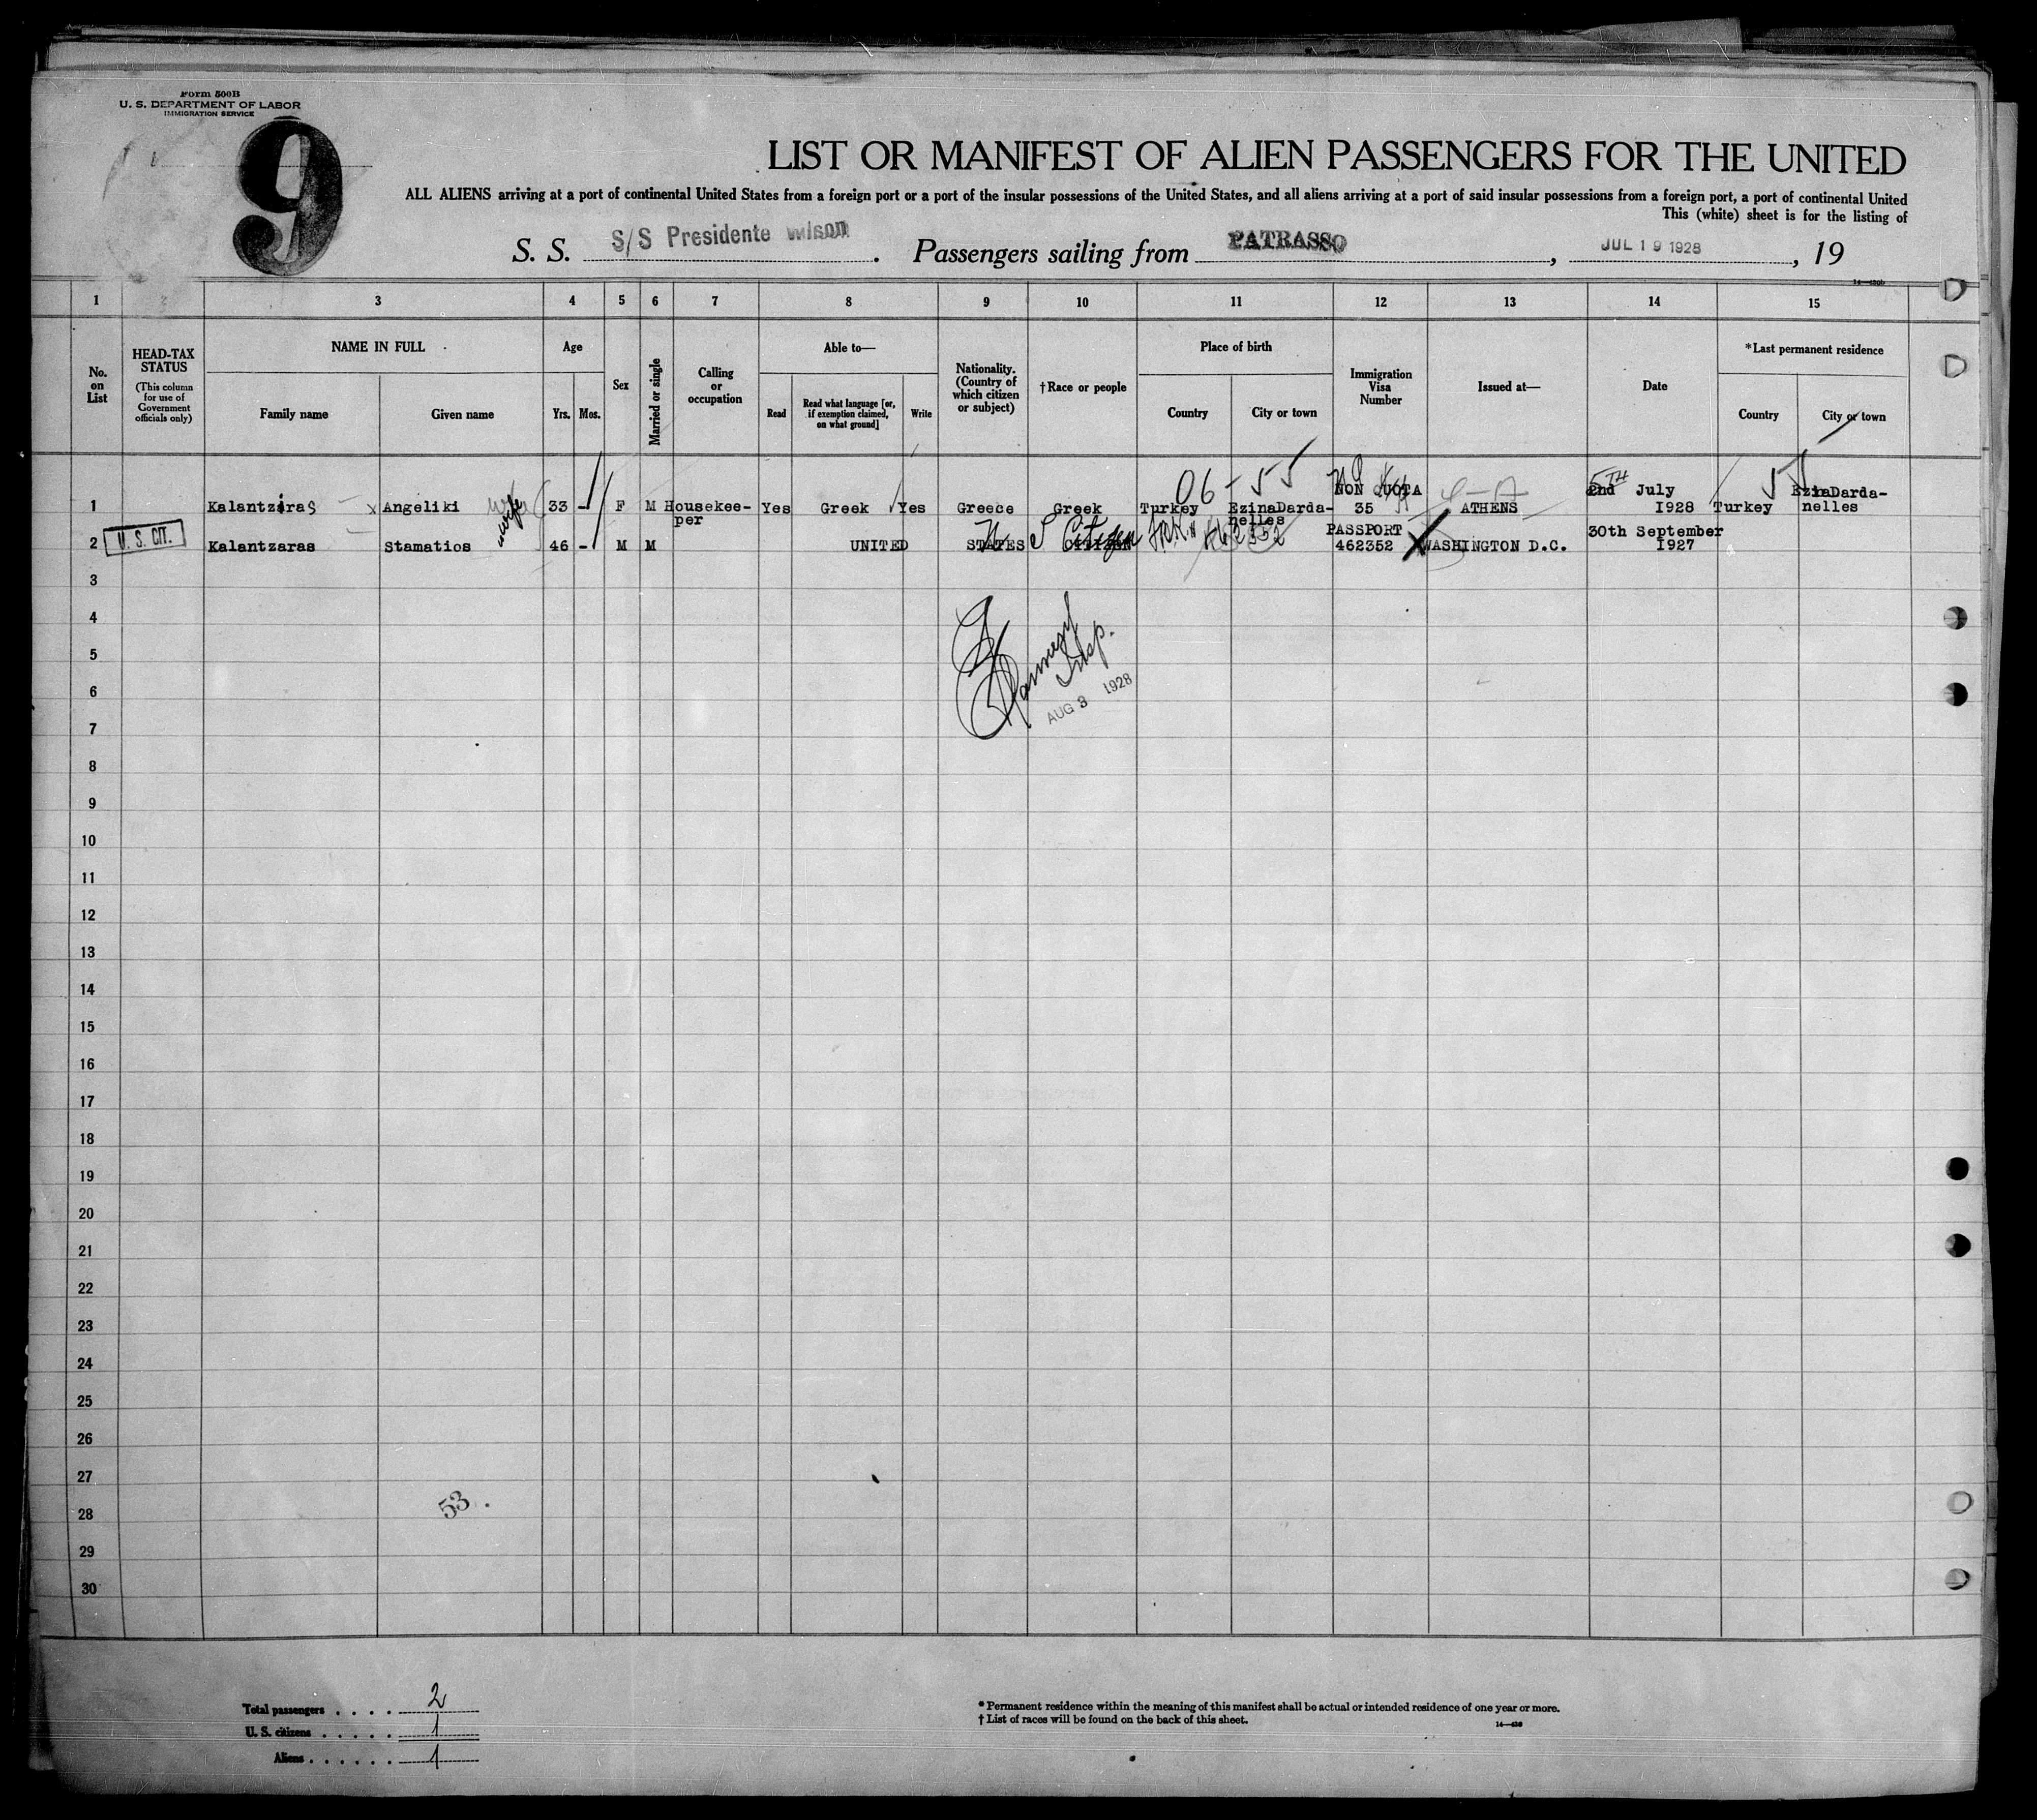 Form 500B
U. S. DEPARTMENT OF LABOR
IMMIGRATION SERVICE
9
LIST OR MANIFEST OF ALIEN PASSENGERS FOR THE UNITED
ALL ALIENS arriving at a port of continental United States from a foreign port or a port of the insular possessions of the United States, and all aliens arriving at a port of said insular possessions from a foreign port, a port of continental United
This (white) sheet is for the listing of
S. S. S/S Presidente Wilson. Passengers sailing from PATRASSO, JUL 19 1928, 19
1 3 4 5 6 7 8 9 10 11 12 13 14 15
No. on List
HEAD-TAX STATUS
(This column for use of Government officials only)
NAME IN FULL
Family name
Given name
Age
Yrs.
Mos.
Sex
Married or single
Calling or occupation
Able to—
Read
Read what language [or, if exemption claimed, on what ground]
Write
Nationality. (Country of which citizen or subject)
†Race or people
Place of birth
Country
City or town
Immigration Visa Number
Issued at—
Date
*Last permanent residence
Country
City or town
06-55
NON QUOTA
5TH
1 Kalantziras Angeliki wife 33 - F M Housekee-per Yes Greek Yes Greece Greek Turkey EzinaDarda-nelles 35 ATHENS 2nd July 1928 Turkey EzinaDarda-nelles
U. S. CIT.
2 Kalantzaras Stamatios 46 - M M UNITED STATES CITIZEN PASSPORT 462352 WASHINGTON D.C. 30th September 1927
U S Citizen 462352
3
4
5
Insp.
6
AUG 3 1928
7
8
9
10
11
12
13
14
15
16
17
18
19
20
21
22
23
24
25
26
27
28
53.
29
30
Total passengers . . . . 2
U. S. citizens . . . . . 1
Aliens . . . . . . 1
*Permanent residence within the meaning of this manifest shall be actual or intended residence of one year or more.
†List of races will be found on the back of this sheet.